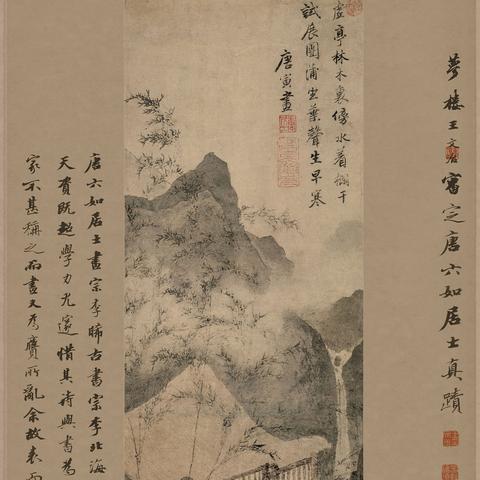 夢樓王文治審定唐六如居士真蹟
虛亭林木裏傍水着欄干
試展團蒲坐葉聲生早寒
唐寅畫
唐六如居士畫宗李晞古書宗李北海
天資既超學力尤邃惜其詩與書為
家不甚稱之而畫又為贋所亂余故表而